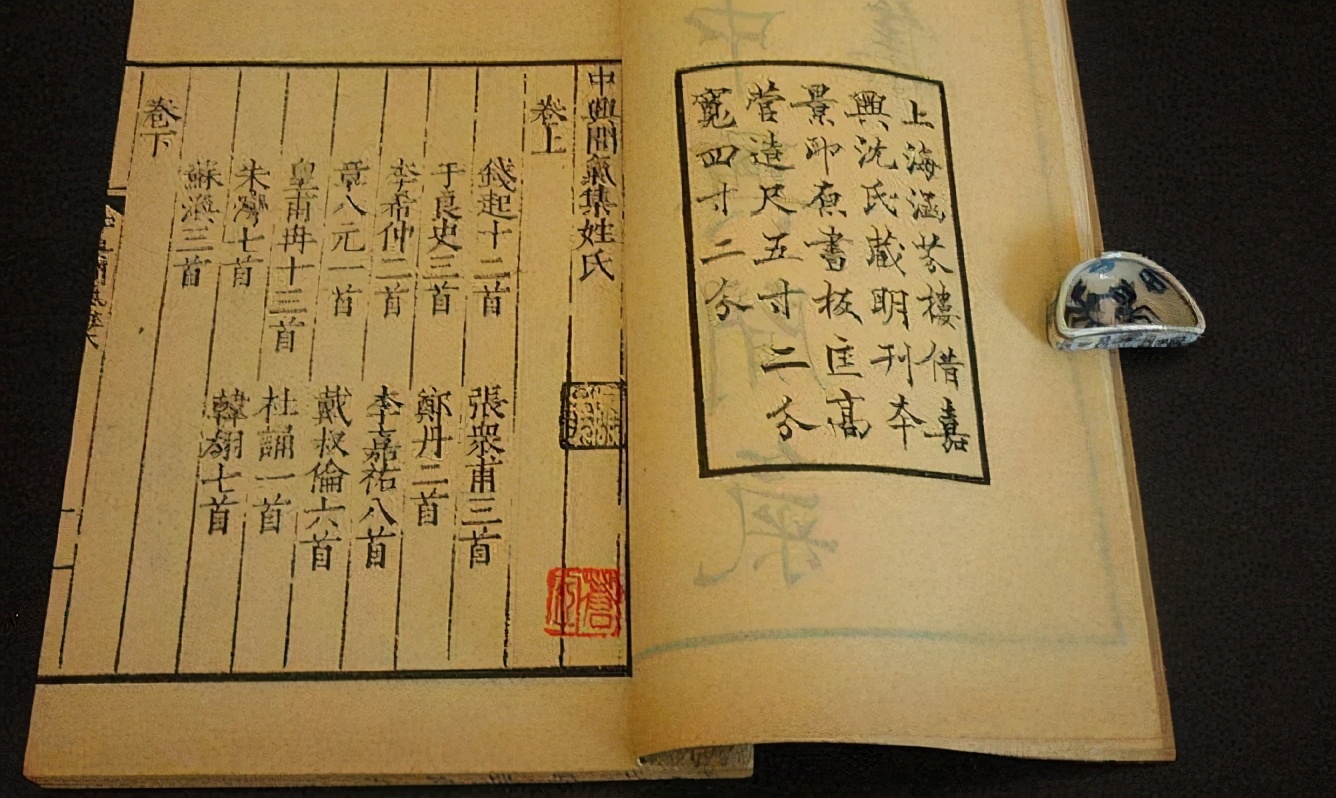 上海涵芬樓借嘉
興沈氏藏明刊本
景印原書板匡高
營造尺五寸二分
寬四寸二分
中興閒氣集姓氏
卷上
錢起十二首
張眾甫三首
于良史三首
鄭丹二首
李希仲二首
李嘉祐八首
章八元一首
戴叔倫六首
皇甫冉十三首
杜誦一首
朱灣七首
韓翃七首
蘇渙三首
卷下